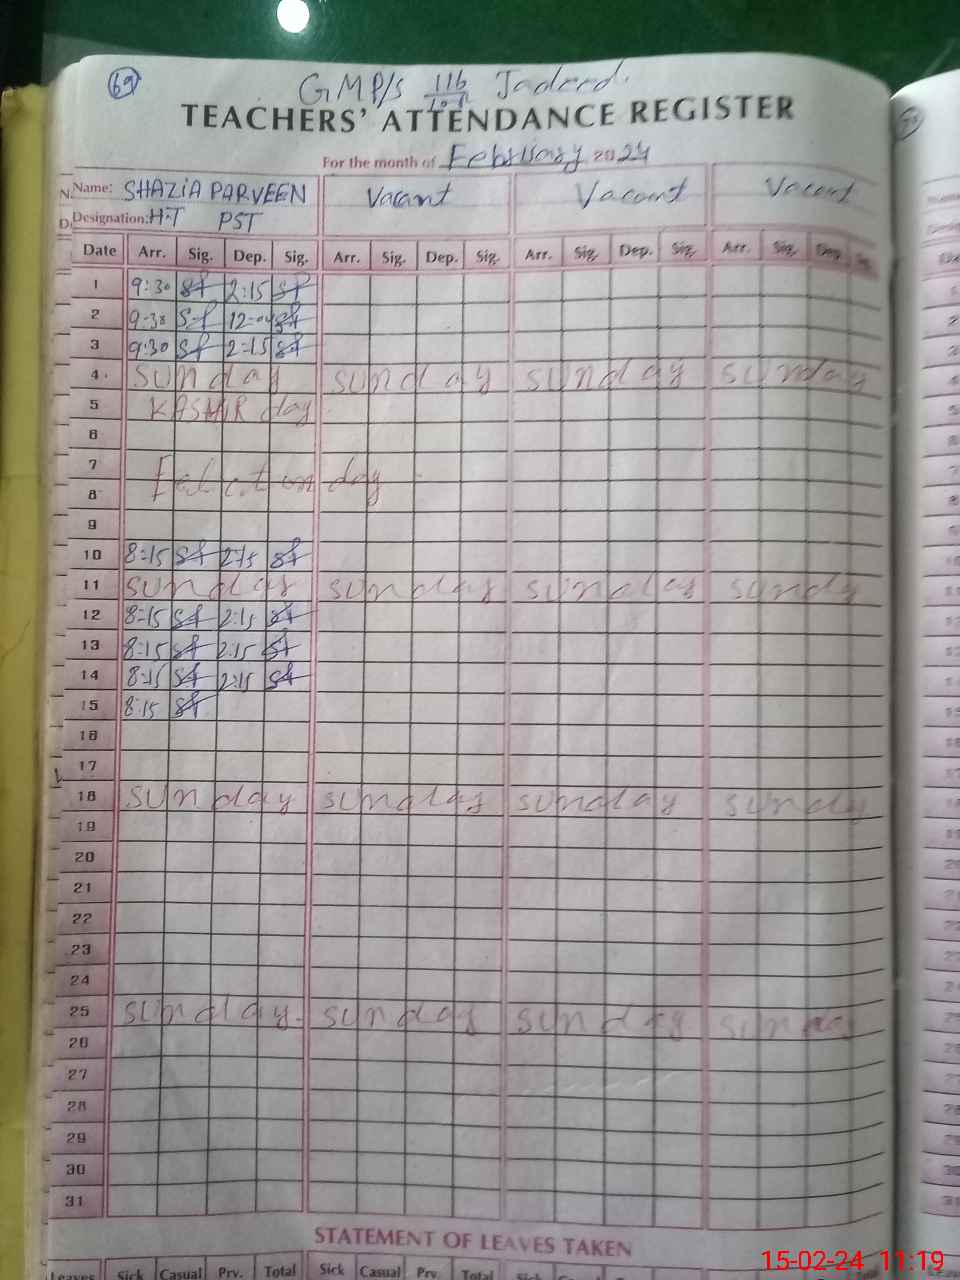 69
GMP/S 116 Jadeed.
TEACHERS' ATTENDANCE REGISTER
For the month of February 2024
Name: SHAZIA PARVEEN Vacant Vacant Vacant
Designation: H.T PST
Date Arr. Sig. Dep. Sig. Arr. Sig. Dep. Sig. Arr. Sig. Dep. Sig. Arr. Sig. Dep. Sig.
1 9:30 2:15
2 9:30
3 9:30 2:15
4 Sunday Sunday Sunday Sunday
5 KASHIR day
6
7
8 Felection day
9
10 8:15 2:15
11 Sunday Sunday Sunday Sundy
12 8:15 2:15
13 8:15 2:15
14 8:15 2:15
15 8:15
16
17
18 Sunday Sunday Sunday Sundy
19
20
21
22
23
24
25 Sunday Sunday Sunday Sunday
26
27
28
29
30
31
STATEMENT OF LEAVES TAKEN
Leaves Sick Casual Prv. Total Sick Casual Prv. Total Sick
15-02-24 11:19